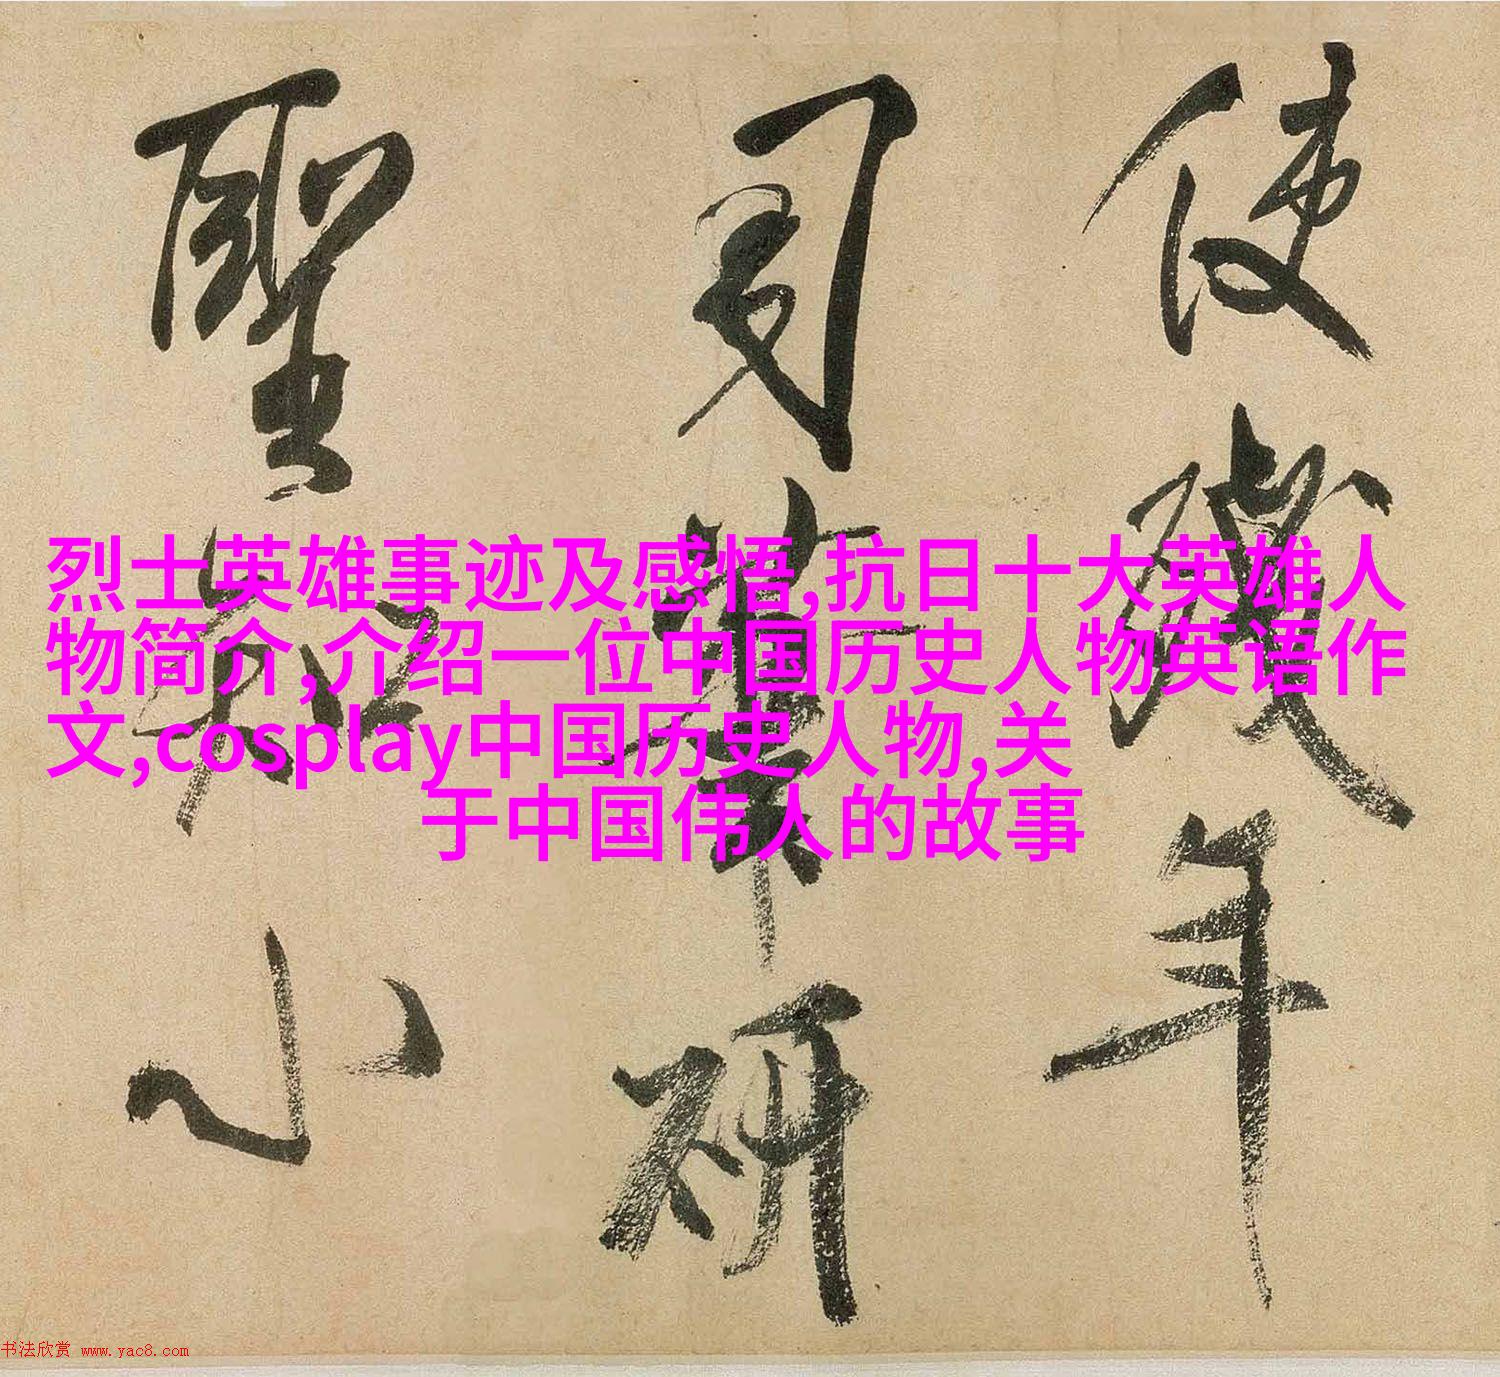 使殘年
司筆研
聖知小
烈士英雄事迹及感悟,抗日十大英雄人
物简介,介绍一位中国历史人物英语作
文,cosplay中国历史人物,关
于中国伟人的故事
书法欣赏 www.yac8.com